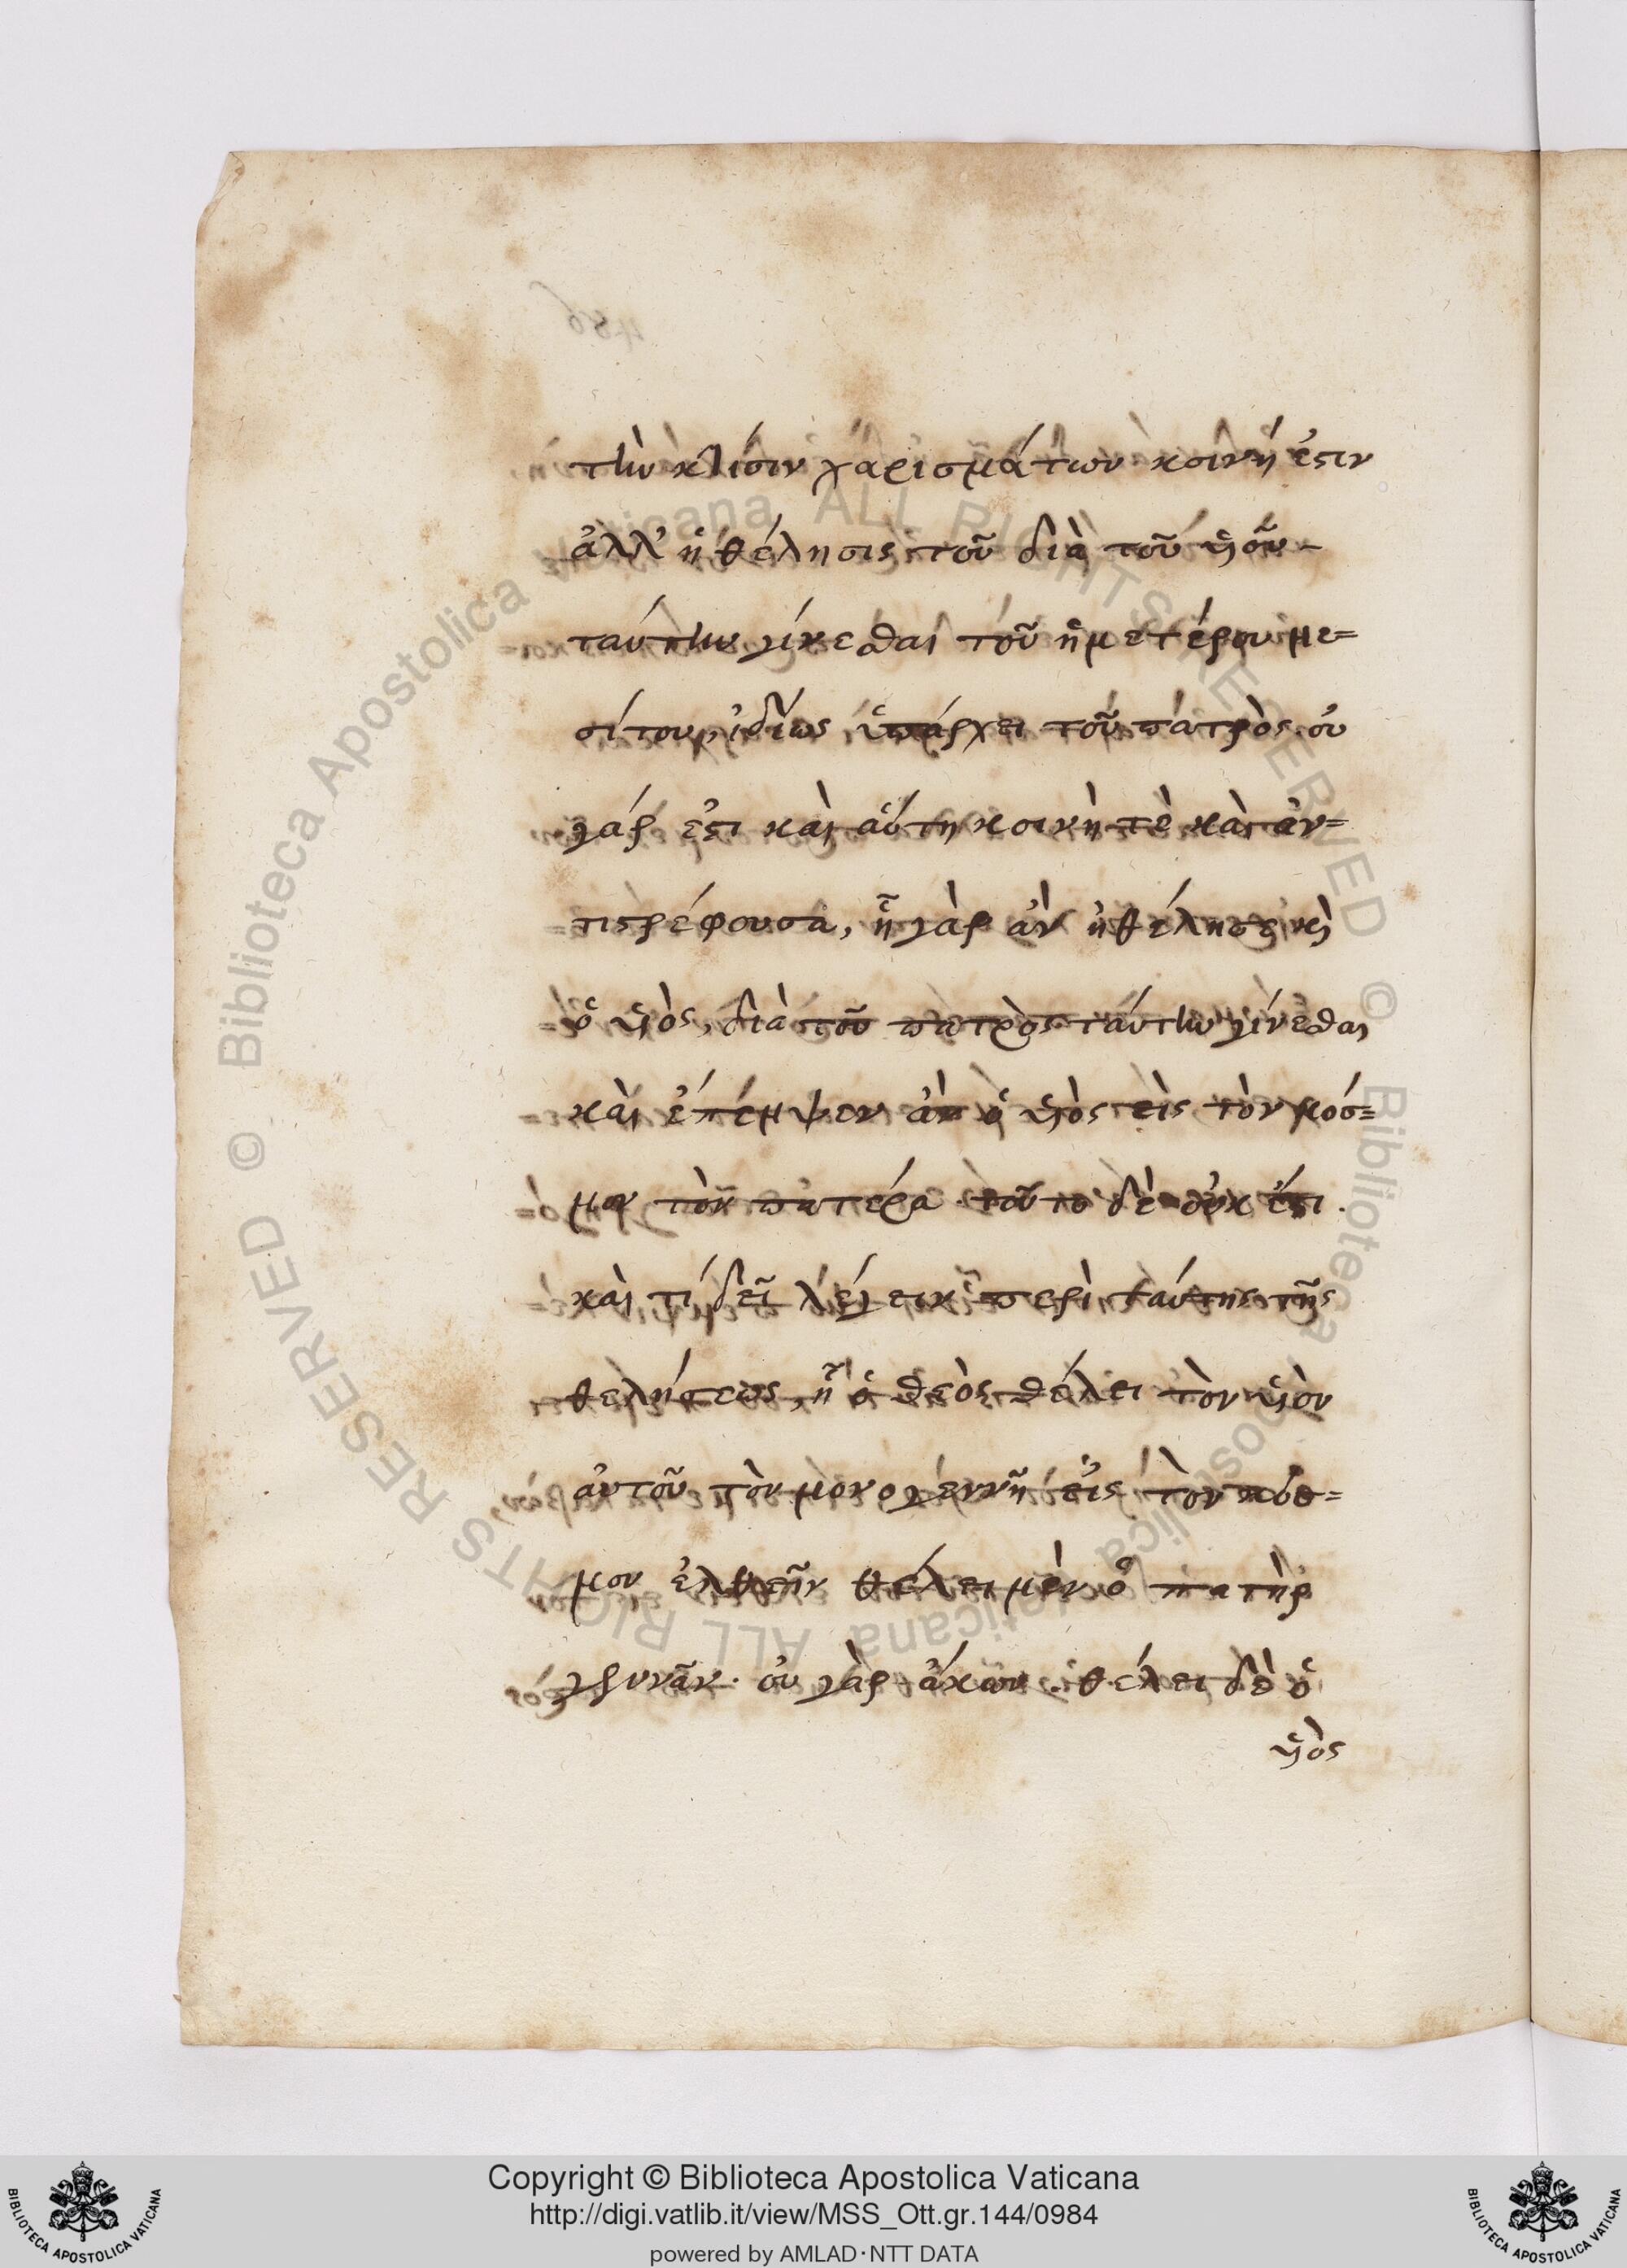 τὴν κλίσιν χαρισμάτων κοινή ἐστιν
ἀλλ' ἡ θέλησις τοῦ διὰ τοῦ υἱοῦ
ταύτην γίνεσθαι τοῦ ἡμετέρου με=
σίτου, ἰδίως ὑπάρχει τοῦ πατρὸς. οὐ
γάρ ἐστι καὶ αὕτη κοινὴ τὲ καὶ ἀν=
τιστρέφουσα, ἦ γὰρ ἂν ἠθέλησε καὶ
ὁ υἱὸς, διὰ τοῦ πατρὸς ταύτην γίνεσθαι
καὶ ἐπέμψεν ἂν ὁ υἱὸς εἰς τὸν κόσ=
μον τὸν πατέρα. τοῦτο δὲ οὐκ ἔστι.
καὶ τί δεῖ λέγειν περὶ ταύτης τῆς
θελήσεως, ἧ ὁ θεὸς θέλει τὸν υἱὸν
αὐτοῦ τὸν μονογεννῆ εἰς τὸν κόσ=
μον ἐλθεῖν θέλει μὲν ὁ πατὴρ
γεννᾶν. οὐ γὰρ ἄκων. θέλει δὲ ὁ
υἱὸς
486
Copyright © Biblioteca Apostolica Vaticana
http://digi.vatlib.it/view/MSS_Ott.gr.144/0984
powered by AMLAD·NTT DATA
BIBLIOTECA APOSTOLICA VATICANA
BIBLIOTECA APOSTOLICA VATICANA
© Biblioteca Apostolica Vaticana ALL RIGHTS RESERVED © Biblioteca Apostolica Vaticana ALL RIGHTS RESERVED